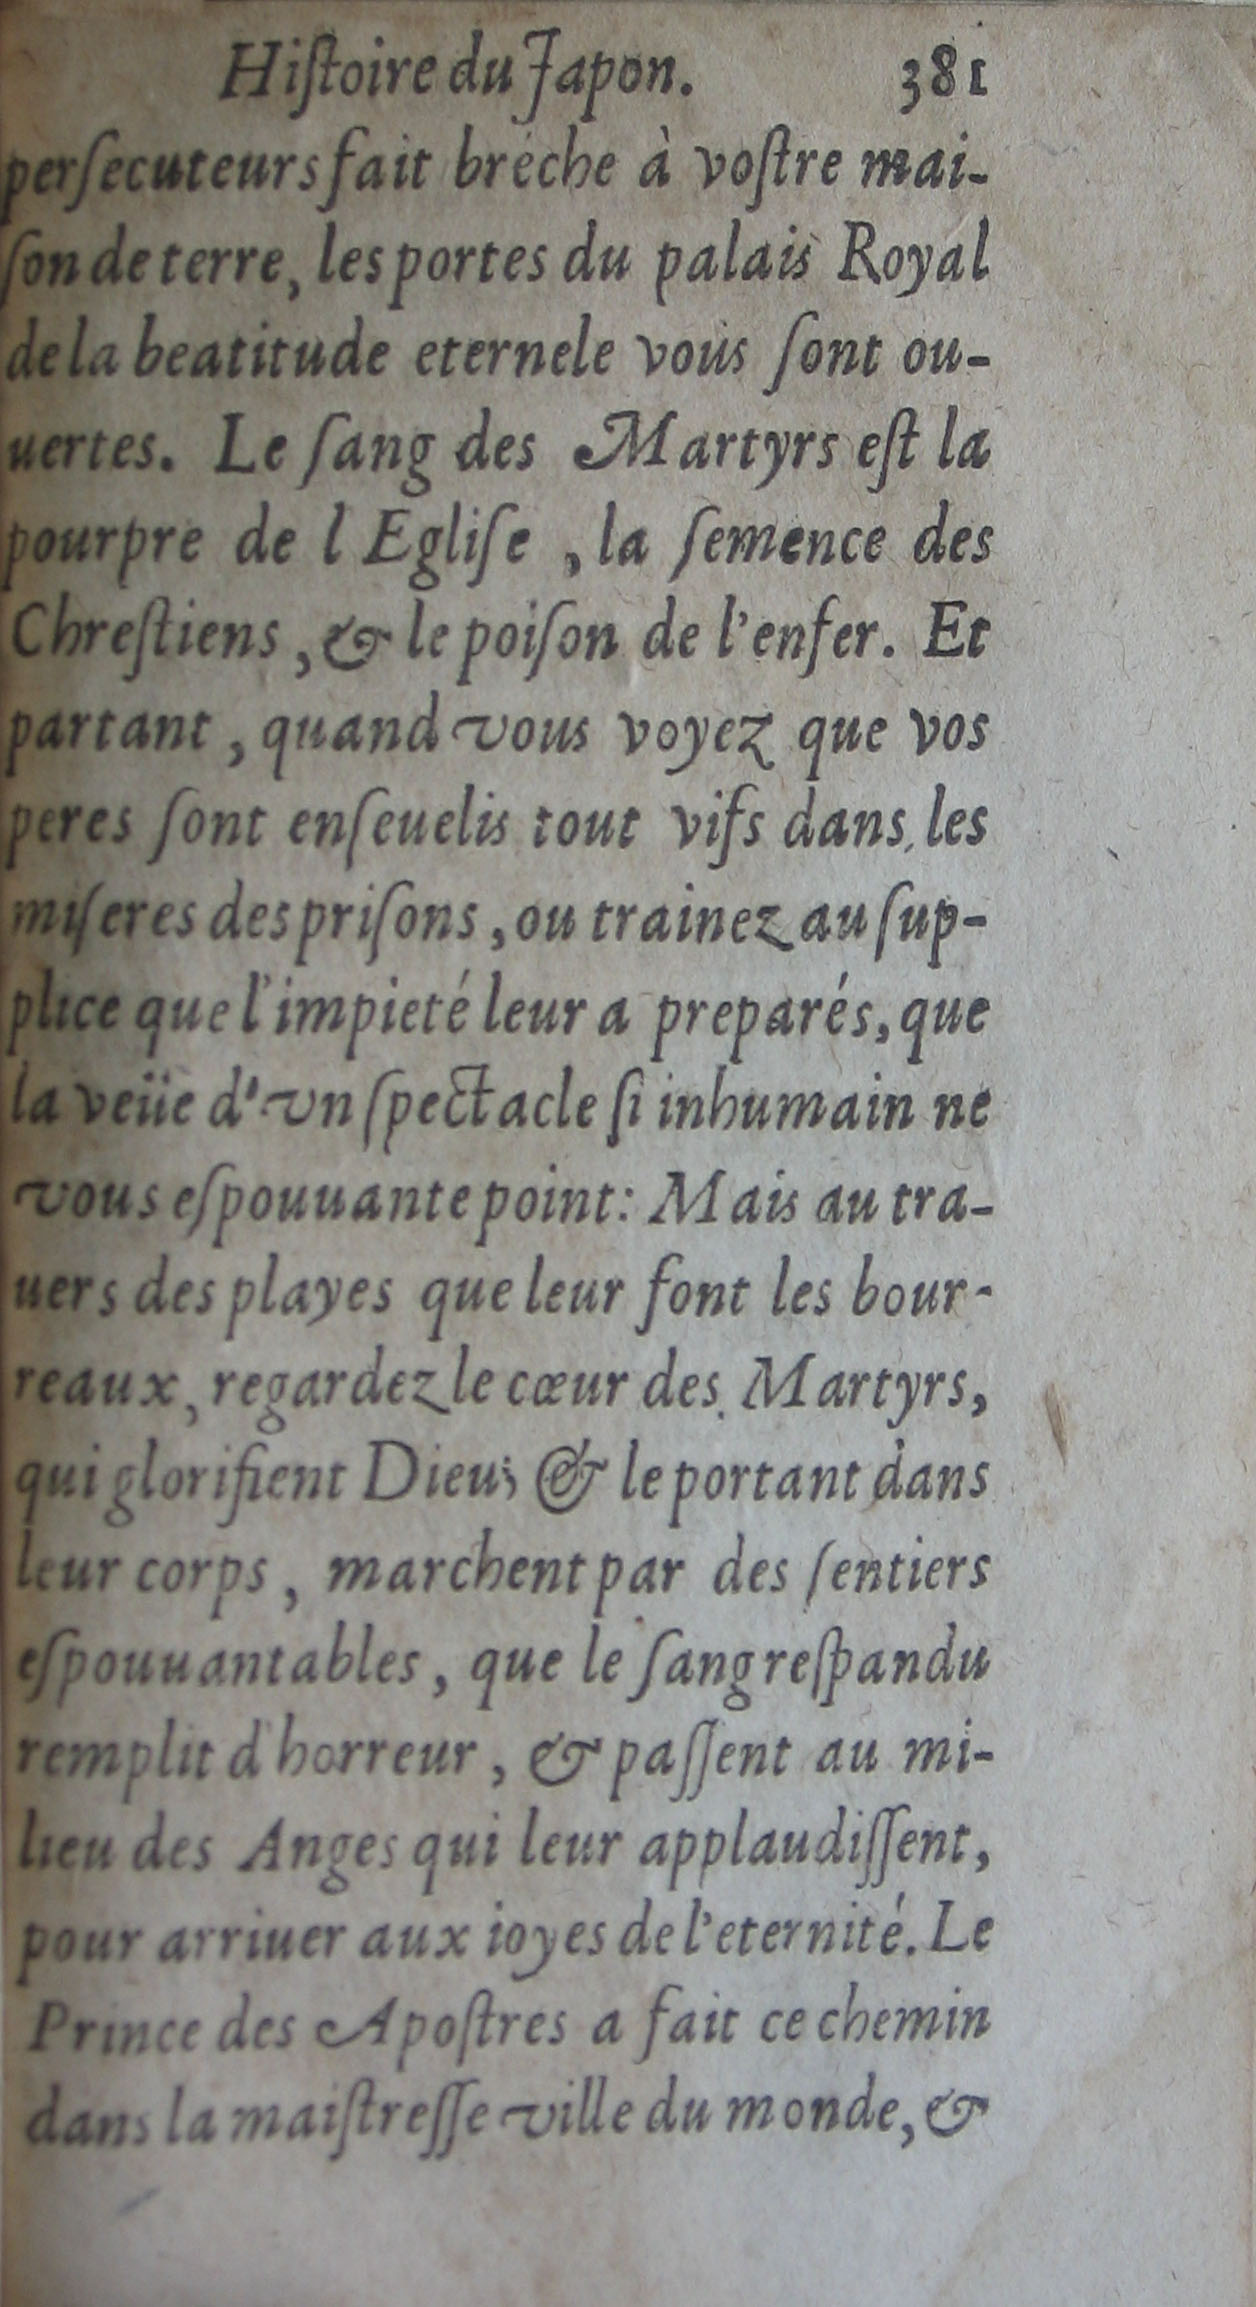 Hiſtoire du Japon. 381
perſecuteurs fait bréche à voſtre mai-
ſon de terre, les portes du palais Royal
de la beatitude eternele vous ſont ou-
uertes. Le ſang des Martyrs eſt la
pourpre de l Egliſe , la ſemence des
Chreſtiens , & le poiſon de l'enfer. Et
partant , quand vous voyez que vos
peres ſont enſeuelis tout vifs dans les
miſeres des priſons , ou trainez au ſup-
plice que l'impieté leur a preparés, que
la veüe d'vn ſpectacle ſi inhumain ne
vous eſpouuante point: Mais au tra-
uers des playes que leur font les bour-
reaux, regardez le cœur des Martyrs,
qui glorifient Dieu; & le portant dans
leur corps , marchent par des ſentiers
eſpouuantables , que le ſang reſpandu
remplit d'horreur , & paſſent au mi-
lieu des Anges qui leur applaudiſſent,
pour arriuer aux ioyes de l'eternité. Le
Prince des Apoſtres a fait ce chemin
dans la maiſtreſſe ville du monde, &